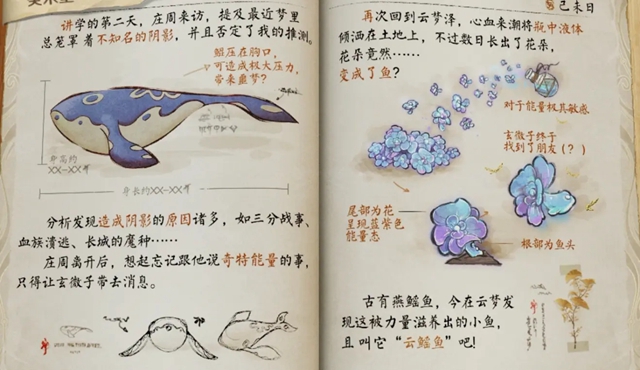 己未日
讲学的第二天，庄周来访，提及最近梦里
总笼罩着不知名的阴影，并且否定了我的推测。
鲲压在胸口，
可造成极大压力，
带来噩梦？
身高约
XX-XX年
身长约XX-XX年
分析发现造成阴影的原因诸多，如三分战事、
血族溃逃、长城的魔种……
庄周离开后，想起忘记跟他说奇特能量的事，
只得让玄微子带去消息。
再次回到云梦泽，心血来潮将瓶中液体
倾洒在土地上，不过数日长出了花朵，
花朵竟然……
变成了鱼？
对于能量极其敏感
玄微子终于
找到了朋友（？）
尾部为花
呈现蓝紫色
能量态
根部为鱼头
古有燕鳐鱼，今在云梦发
现这被力量滋养出的小鱼，
且叫它“云鳐鱼”吧！